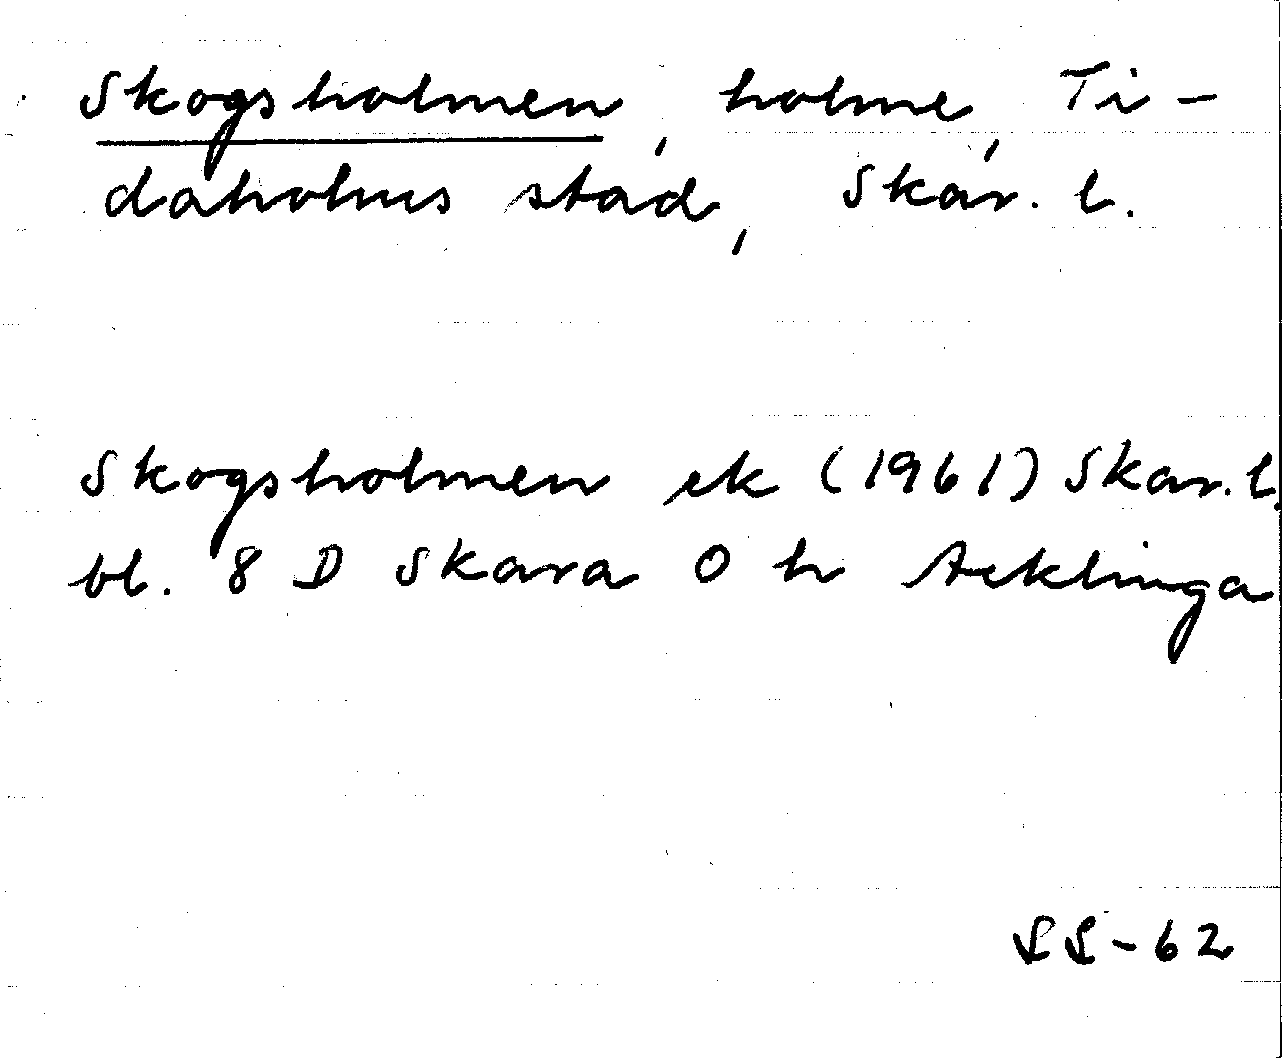 Skogsholmen, holme, Ti-
daholms stad, Skar. l.
Skogsholmen ek (1961) Skar. l.
bl. 8 D Skara 0 h Acklinga
SS-62